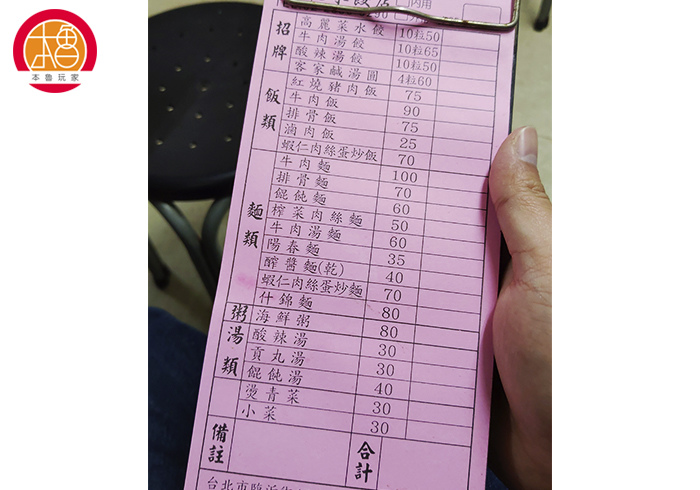 本魯玩家
75 內用
招牌
高麗菜水餃 10粒50
牛肉湯餃 10粒65
酸辣湯餃 10粒50
客家鹹湯圓 4粒60
飯類
紅燒豬肉飯 75
牛肉飯 90
排骨飯 75
滷肉飯 25
蝦仁肉絲蛋炒飯 70
麵類
牛肉麵 100
排骨麵 70
餛飩麵 60
榨菜肉絲麵 50
牛肉湯麵 60
陽春麵 35
醡醬麵(乾) 40
蝦仁肉絲蛋炒麵 70
什錦麵 80
粥
海鮮粥 80
湯類
酸辣湯 30
貢丸湯 30
餛飩湯 40
燙青菜 30
小菜 30
備註
合計
台北市臨沂街